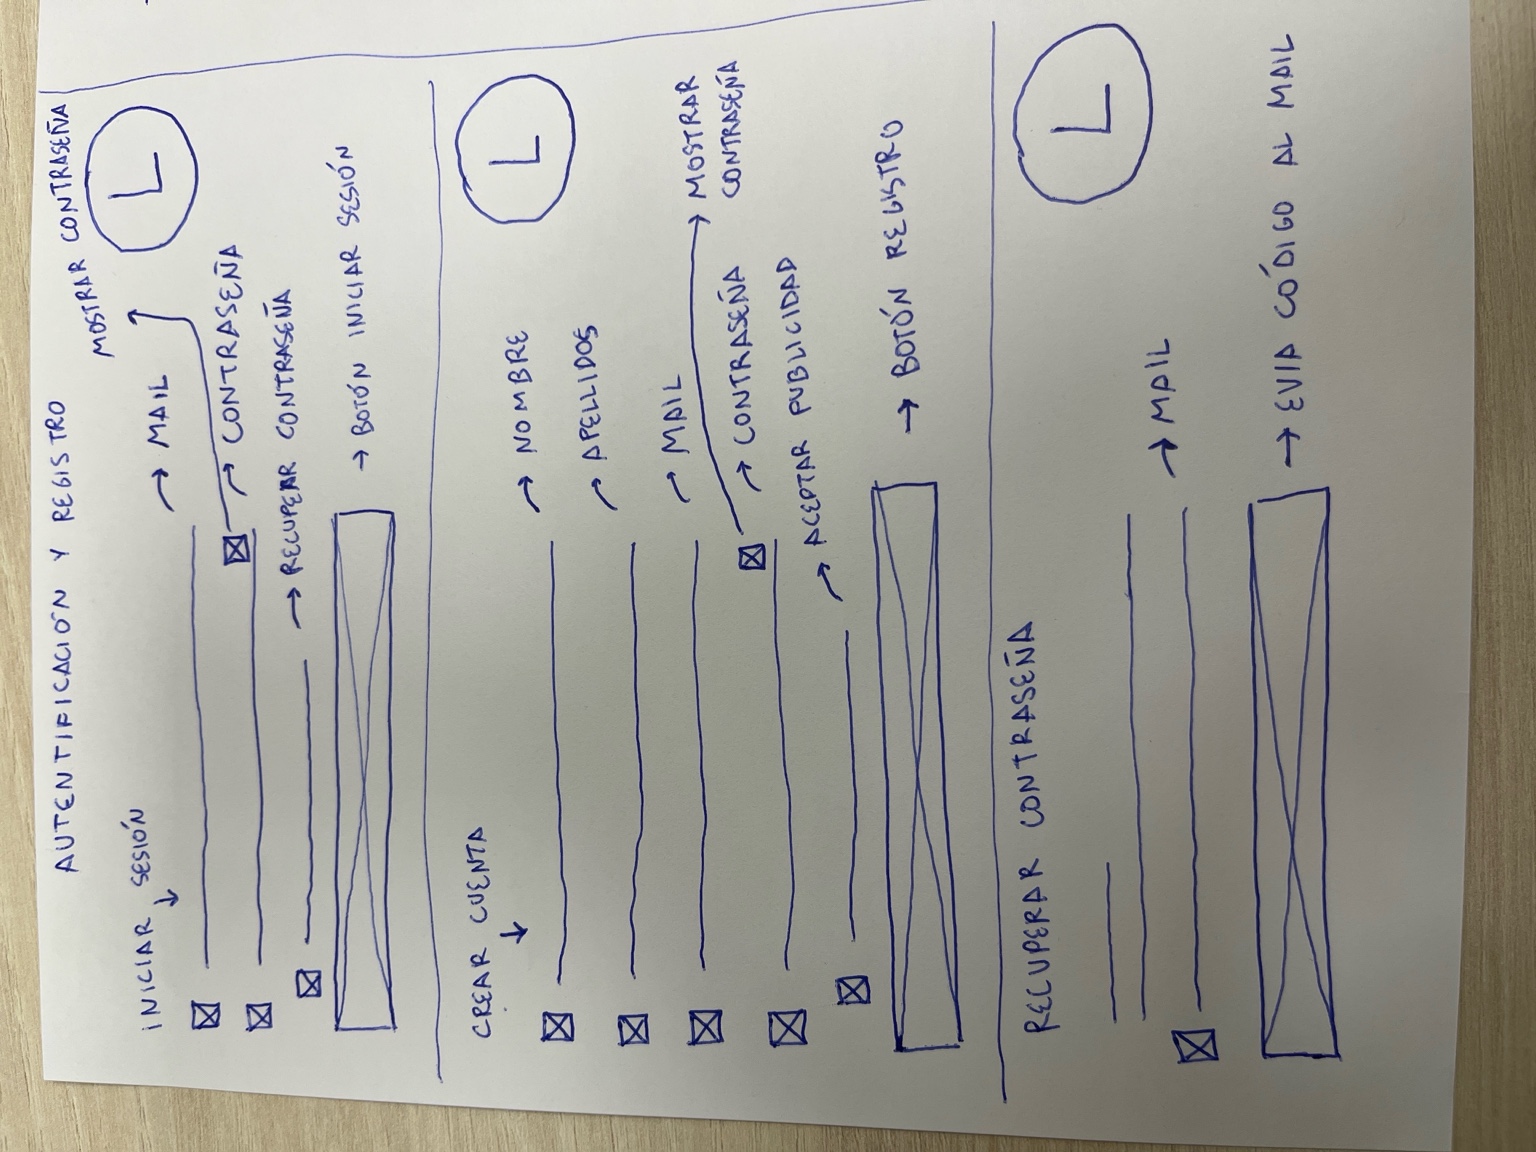 AUTENTIFICACIÓN Y REGISTRO
MOSTRAR CONTRASEÑA
L
INICIAR SESIÓN
MAIL
CONTRASEÑA
RECUPERAR CONTRASEÑA
BOTÓN INICIAR SESIÓN
CREAR CUENTA
L
NOMBRE
APELLIDOS
MAIL
MOSTRAR
CONTRASEÑA
CONTRASEÑA
ACEPTAR PUBLICIDAD
BOTÓN REGISTRO
RECUPERAR CONTRASEÑA
L
MAIL
EVIA CÓDIGO AL MAIL